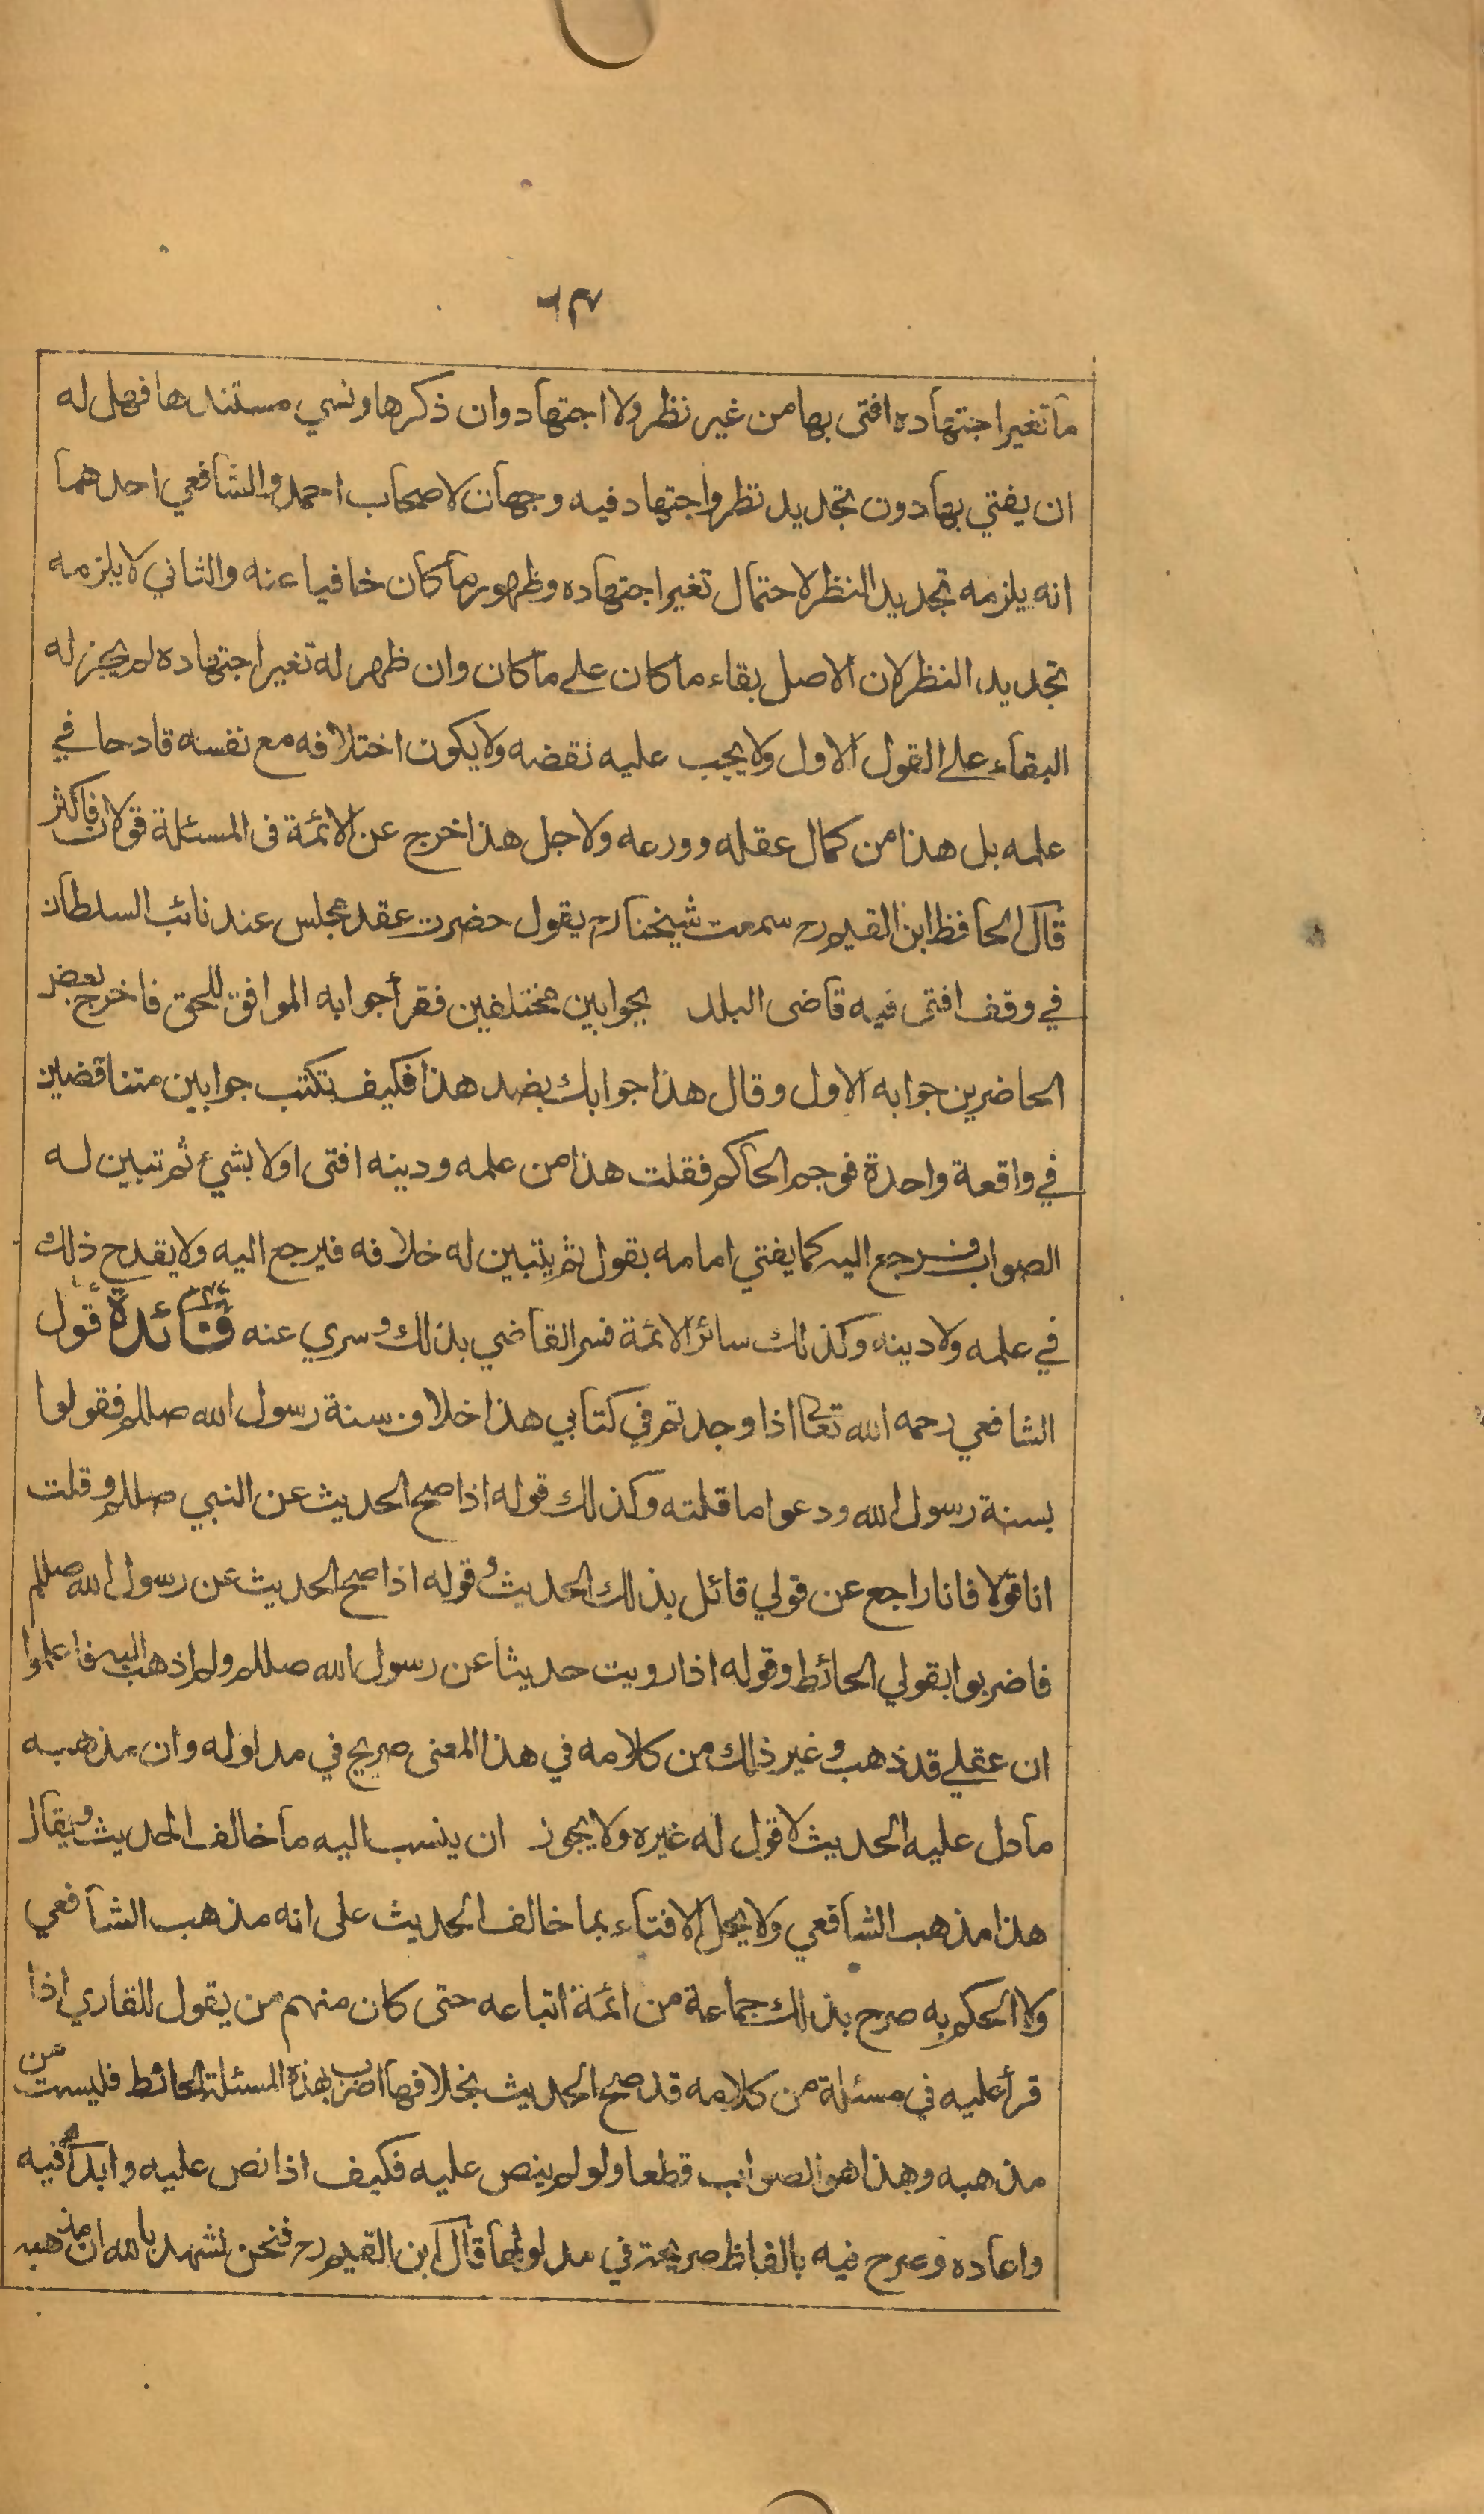 ما تغير اجتهاده افتى بها من غير نظر ولا اجتهاد وان ذكرها ونسي مستندها فهل له
ان يفتي بها دون تجديد نظر واجتهاد فيه وجهان لاصحاب احمد والشافعي احدهما
انه يلزمه تجديد النظر لاحتمال تغير اجتهاده وظهور ما كان خافيا عنه والثاني لا يلزمه
تجديد النظر لان الاصل بقاء ما كان على ما كان وان ظهر له تغير اجتهاده لم يجز له
البقاء على القول الاول ولا يجب عليه نقضه ولا يكون اختلافه مع نفسه قادحا في
علمه بل هذا من كمال عقله وورعه ولاجل هذا خرج عن الائمة فى المسئلة قولان فاكثر
قال الحافظ ابن القيم رح سمعت شيخنا رح يقول حضرت عقد مجلس عند نائب السلطان
في وقف افتى فيه قاضى البلد بجوابين مختلفين فقرأ جوابه الموافق للحق فاخرج بعض
الحاضرين جوابه الاول وقال هذا جوابك بضد هذا فكيف تكتب جوابين متناقضين
في واقعة واحدة فوجم الحاكم فقلت هذا من علمه ودينه افتى اولا بشيء ثم تبين له
الصواب فرجع اليه كما يفتي امامه بقول ثم يتبين له خلافه فيرجع اليه ولا يقدح ذلك
في علمه ولا دينه وكذلك سائر الائمة فسر القاضي بذلك وسري عنه فائدة قول
الشافعي رحمه الله تعالى اذا وجدتم في كتابي هذا خلاف سنة رسول الله صللم فقولوا
بسنة رسول الله ودعوا ما قلته وكذلك قوله اذا صح الحديث عن النبي صللم وقلت
انا قولا فانا راجع عن قولي قائل بذلك الحديث وقوله اذا صح الحديث عن رسول الله صللم
فاضربوا بقولي الحائط وقوله اذا رويت حديثا عن رسول الله صللم ولم اذهب اليه فاعلموا
ان عقلي قد ذهب وغير ذلك من كلامه في هذا المعنى صريح في مدلوله وان مذهبه
ما دل عليه الحديث لا قول له غيره ولا يجوز ان ينسب اليه ما خالف الحديث ويقال
هذا مذهب الشافعي ولا يحل الافتاء بما خالف الحديث على انه مذهب الشافعي
ولا الحكم به صرح بذلك جماعة من ائمة اتباعه حتى كان منهم من يقول للقاري اذا
قرأ عليه في مسئلة من كلامه قد صح الحديث بخلافها اضرب بهذه المسئلة الحائط فليست من
مذهبه وهذا هو الصواب قطعا ولو لم ينص عليه فكيف اذا نص عليه وابدأ فيه
واعاده وصرح فيه بالفاظ صريحة في مدلولها قال ابن القيم رح فنحن نشهد بالله ان مذهبه